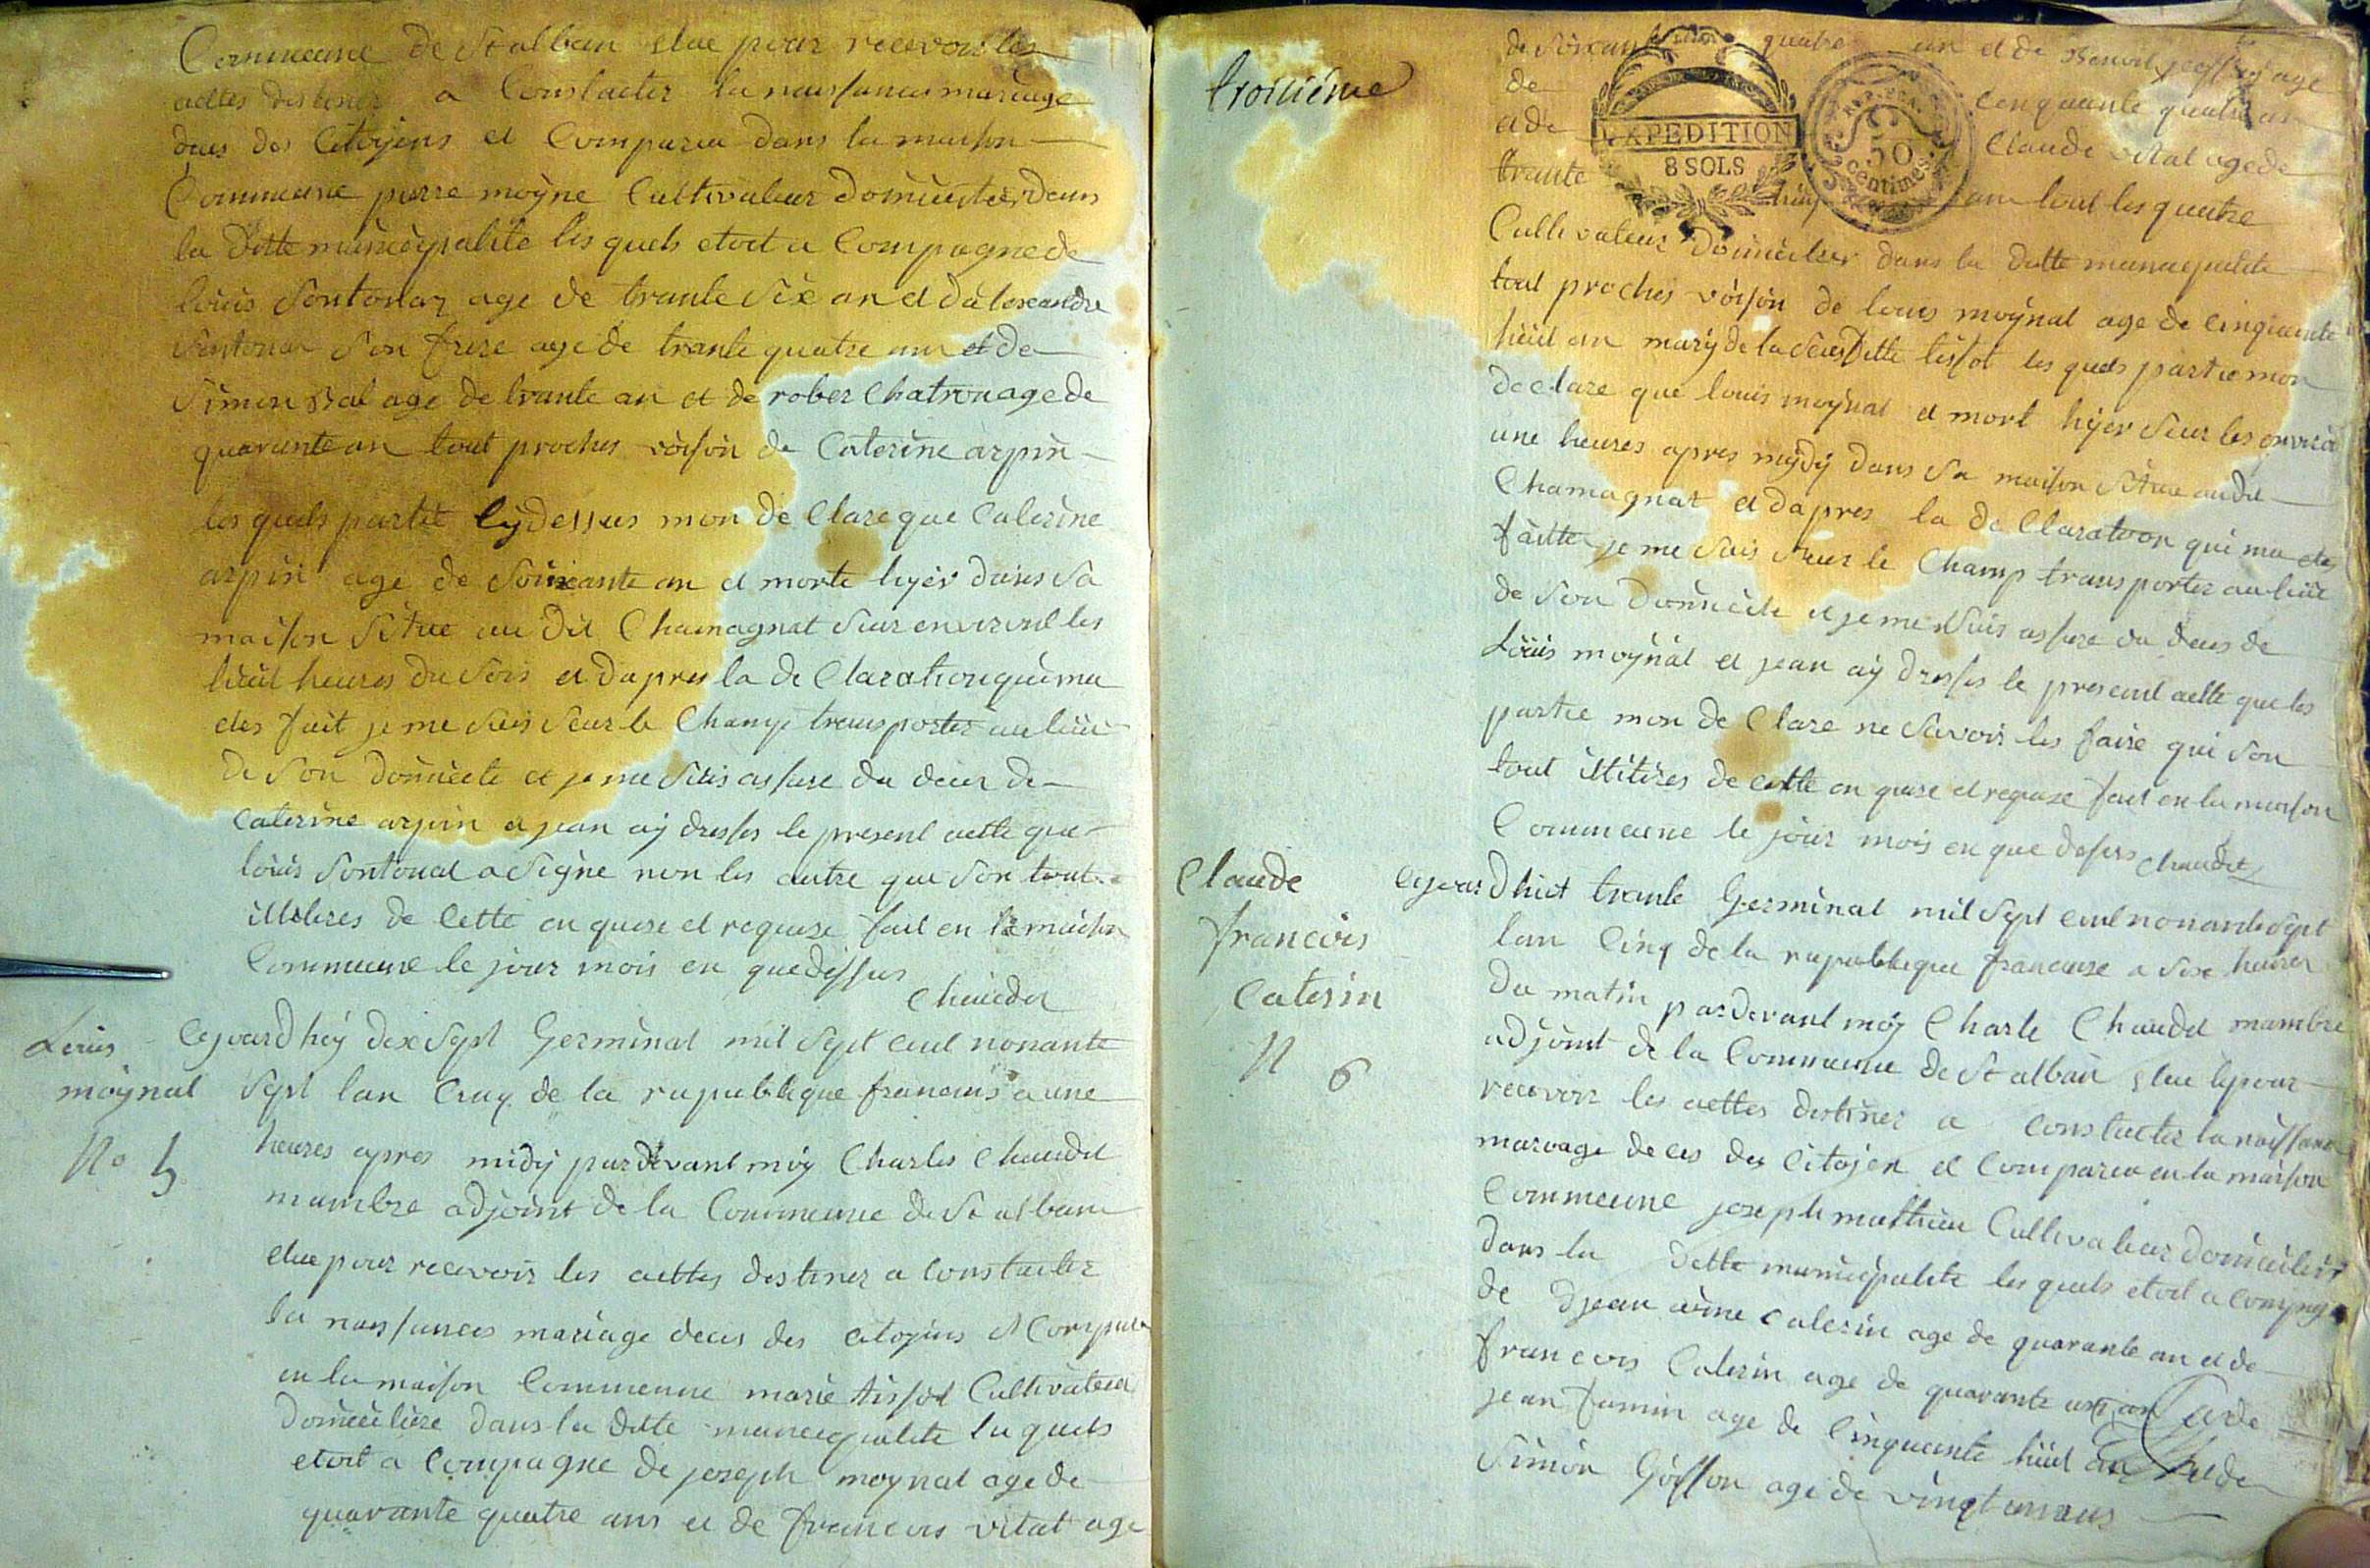 Commeune de St alban elue pour recevoir les
acttes destiner a Constacter la naissances mariage
deces des Citojens et Comparu dans la maison
Commeune pierre moyne Cultivateur domicilier dans
la ditte municipalite les quels etoit a Compagne de
louis Sontonaz age de trante six an et dalexandre
Sontonas son frere age de trante quatre ans et de
Simon age de trante an et de rober Chatron age de
quarante an tout proches voison de Caterine arpin
les quels partie cydessus mon de Clare que Caterine
arpin age de soixante an et morte hyer dans sa
maison situe au dit Chamagnat seur environt les
huit heures du soir et dapres la de Claration qui ma
etes fait je me suis seur le Champ transporter au lieu
de son domicile et je me suis assure du deces de
Caterine arpin et jean aÿ dresses le present actte que
louis Sontonat a signe non les autre que son tout
illitires de cette en quise et requise fait en la maison
Commeune le jour mois en que dessus
Chaudet
Louis
moynat
No 5
Cejourdhuy dixsept Germinal mil sept cent nonante
sept lan Cinq de la rupublique francais a une
heures apres midÿ pardevant moÿ Charles Chaudet
mambre adjoint de la Commeune de St alban
elue pour recevoir les acttes destiner a constacter
la naissances mariage deces des citojens et Comparu
en la maison Commeune marie tissot Cultivateur
domiciliere dans la ditte municipalite la quels
etoit a Compagne de joseph moynat age de
quarante quatre ans et de francois vitat age
troisiéme
de soixante quatre an et de age
de cinquante quatre an
et de Claude vitat age de
trante huit an tout les quatre
EXPEDITION
8 SOLS
REP. FRA.
50
centimes
Cultivateur domicilier dans la ditte municipalite
tout proches voison de louis moynat age de cinquante
huit an marÿ de la ditte tissot les quels partie mon
declare que louis moynat et mort hyer seur les environ
une heures apres mydÿ dans sa maison situe au dit
Chamagnat et dapres la de Claration qui ma etes
faitte je me suis seur le Champ transporter au lieu
de son domicile et je me suis assure du deces de
Louis moynat et jean aÿ dresses le present actte que les
partie mon de Clare ne savoir les faire qui son
tout illitires de cette en quise et requise fait en la maison
Commeune le jour mois en que dessus Chaudet
Claude
francois
Caterin
N 6
Cejourdhuit trante Germinal mil sept cent nonante sept
lan Cinq de la rupublique francaise a six heures
du matin pardevant moÿ Charle Chaudet mambre
adjoint de la Commeune de St alban elue pour
recevoir les acttes destiner a constacter la naissance
mariage deces des Citojen et Comparu en la maison
Commeune joseph mathieu Cultivateur domicilier
dans la ditte municipalite les quels etoit a compagne
de djean aime Caterin age de quarante an et de
francois Caterin age de quarante an et de
jean famin age de Cinquante huit an et de
Simon Goisson age de vingt ans